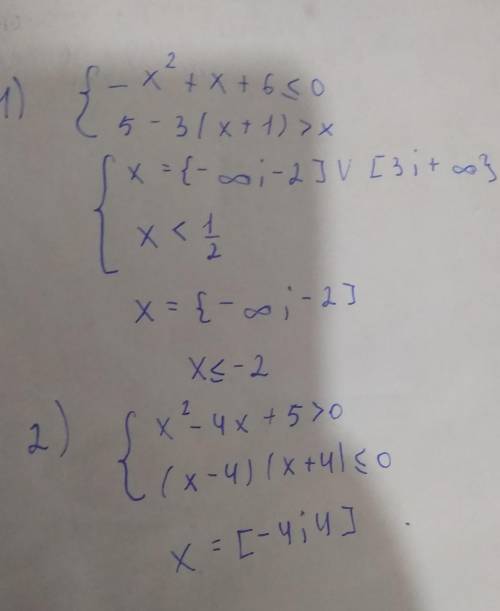 1) { -x² + x + 6 ≤ 0
5 - 3(x + 1) > x
{ x = {-∞; -2] ∨ [3; +∞}
x < 1/2
x = {-∞; -2]
x ≤ -2
2) { x² - 4x + 5 > 0
(x - 4)(x + 4) ≤ 0
x = [-4; 4]